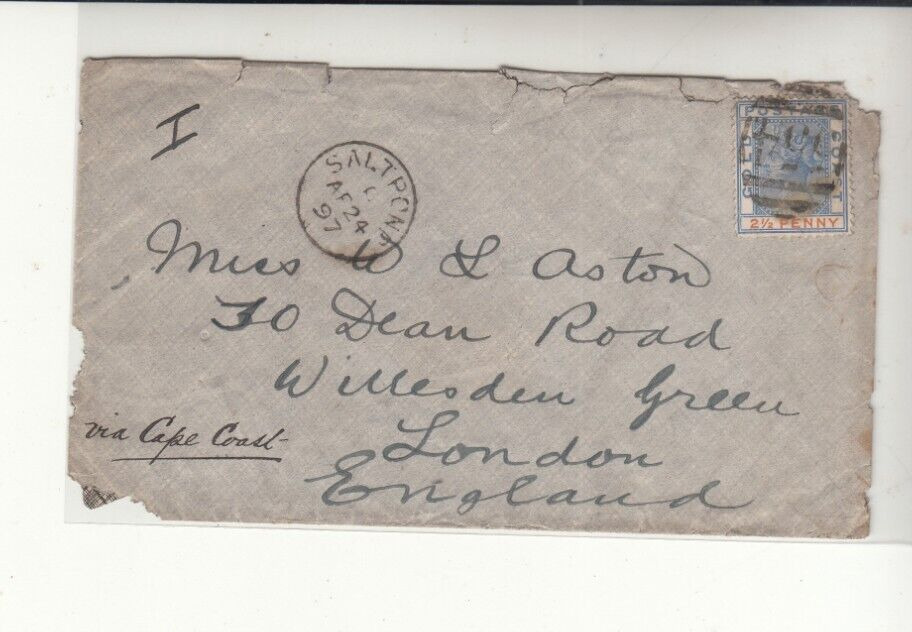 I
SALTPOND
C
AP 24
97
POSTAGE
GOLD COAST
2½ PENNY
Miss W L Aston
30 Dean Road
Willesden Green
via Cape Coast
London
England